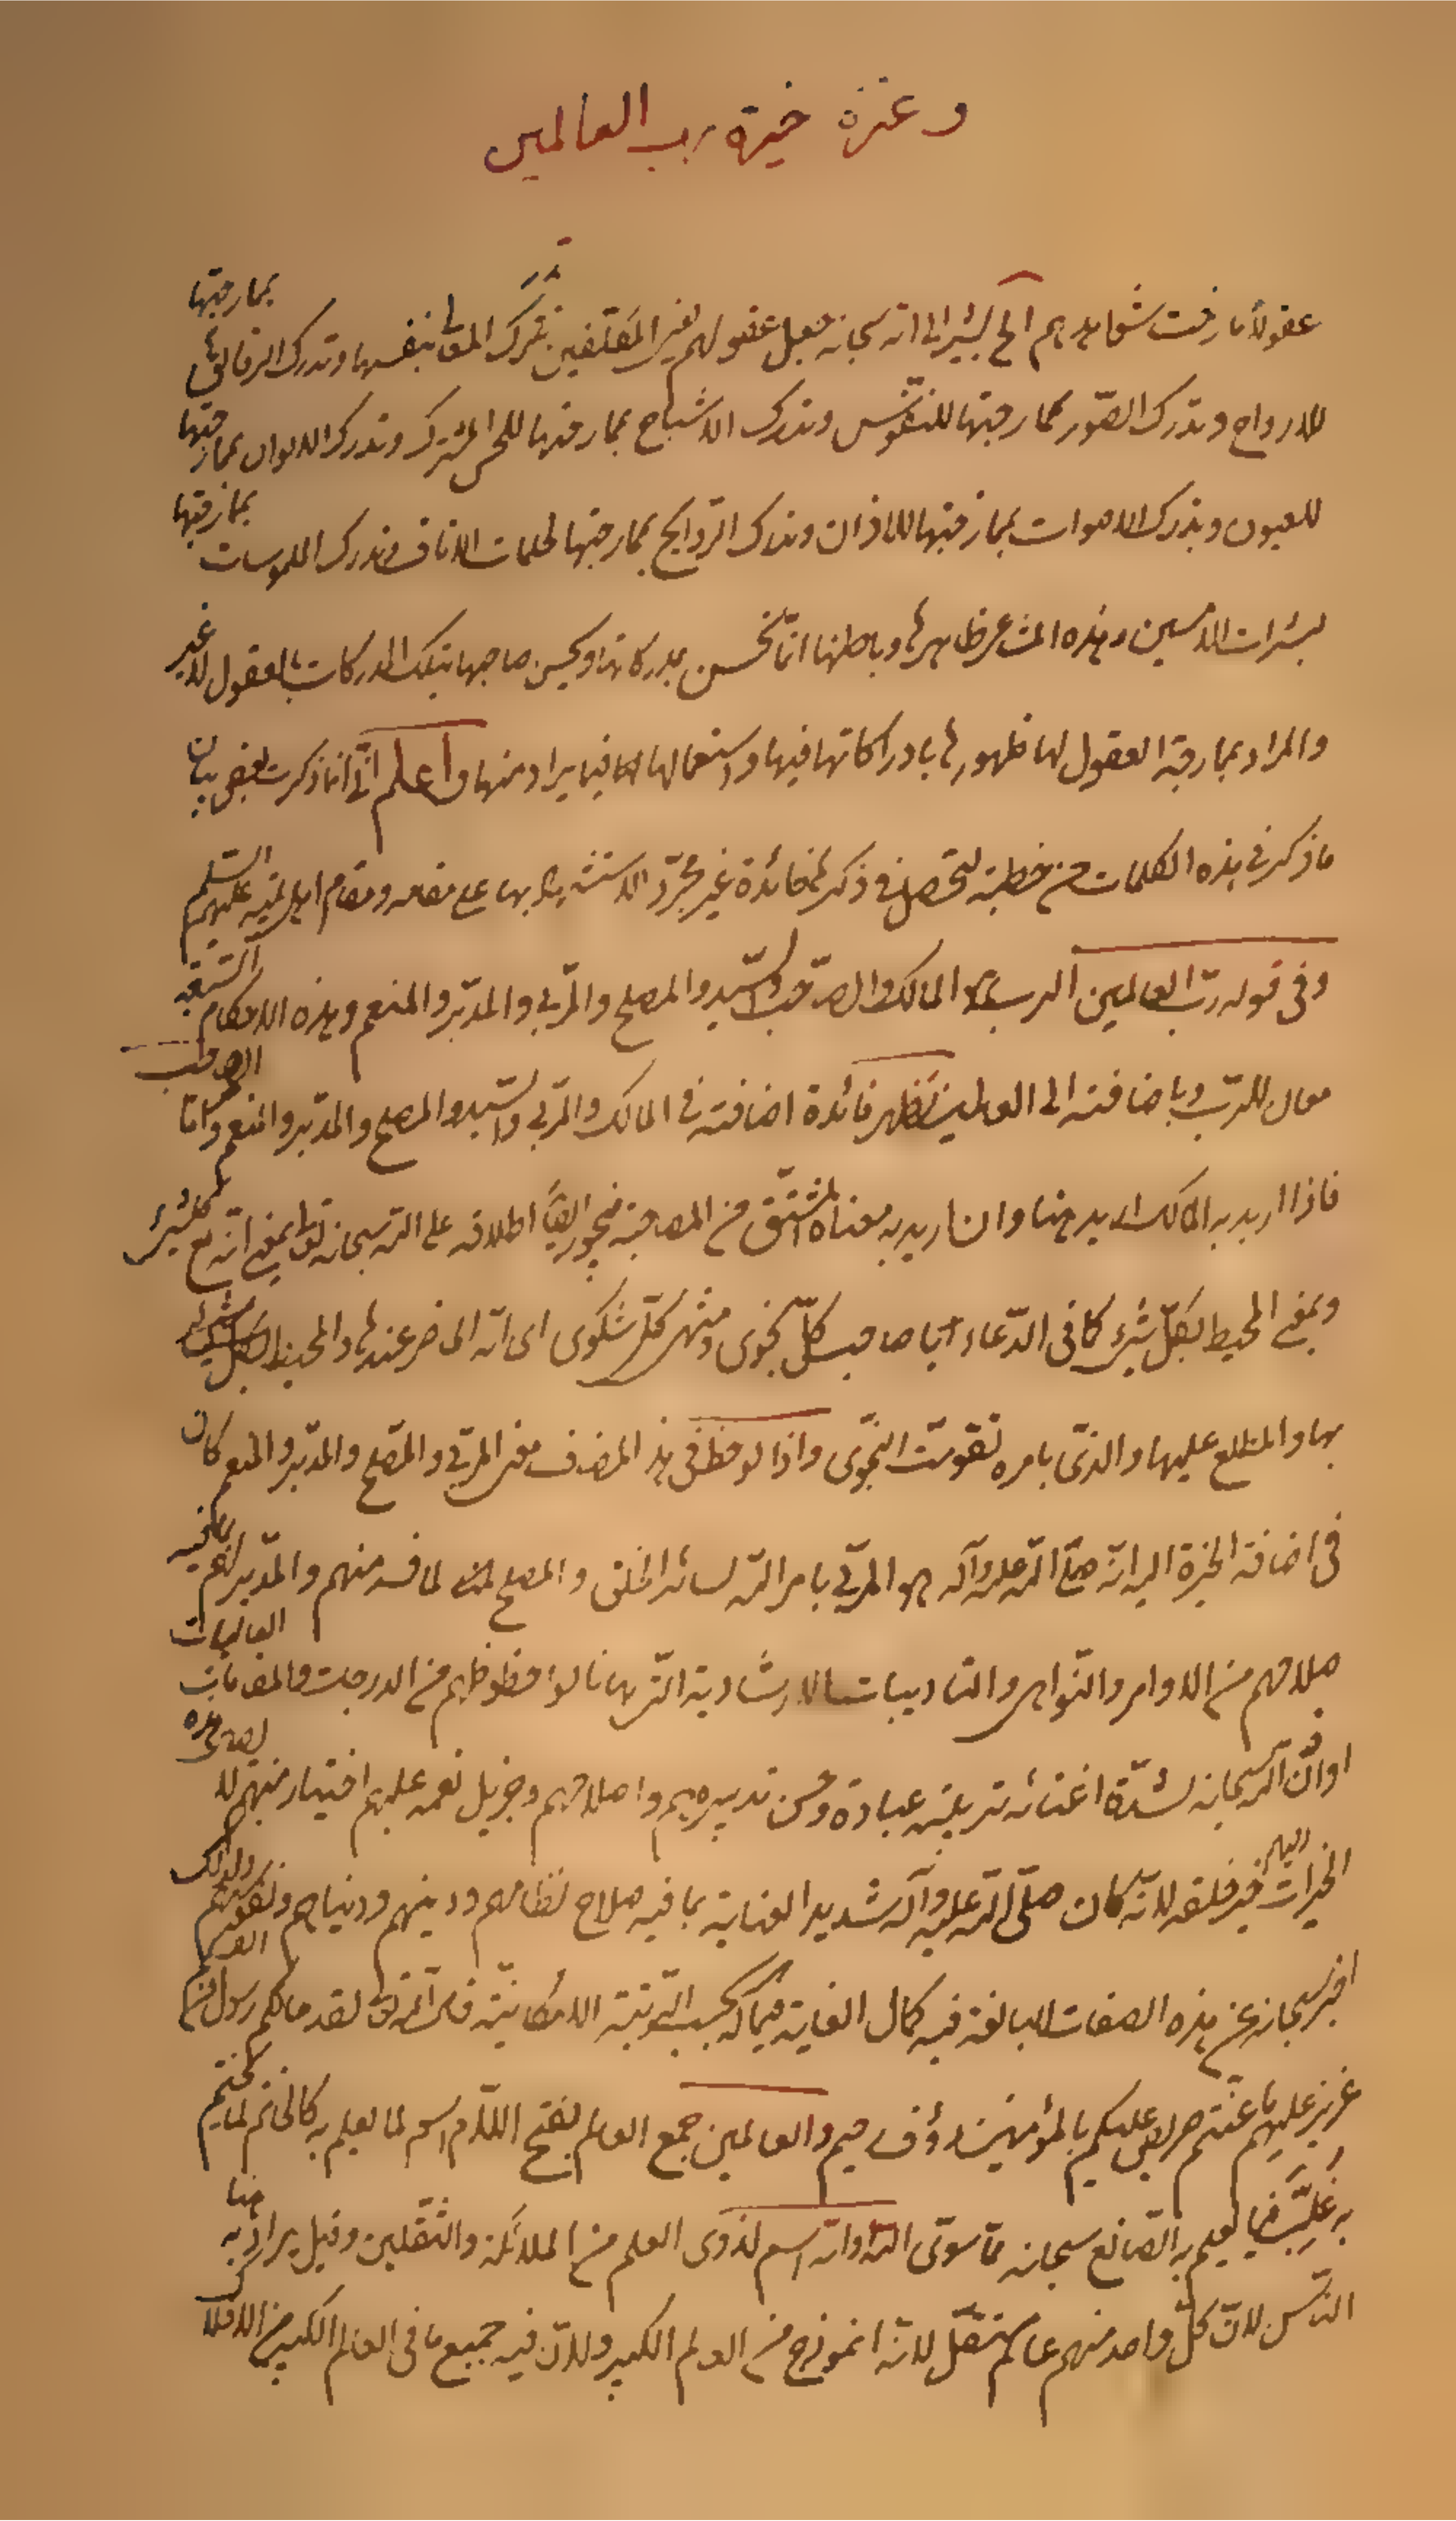 وعترة خيرة رب العالمين
عقولاً مازجت شواهدهم الخ يشير الى انه سبحانه جعل عقولهم لغير المقتفين تدرك المعاني بنفسها وتدرك الرقائق بمازجتها
للارواح وتدرك الصّور بممازجتها للنفوس وتدرك الاشباح بممازجتها للحس المشترك وتدرك الالوان بممازجتها
للعيون وتدرك الاصوات بممازجتها للاذان وتدرك الرّوايح بممازجتها لحلمات الاناف وتدرك الملموسات بممازجتها
لبشرات اللامسين وهذه المشاعر ظاهرها وباطنها انما تحس بمدركاتها ويحس صاحبها بتلك المدركات بالعقول لا غير
والمراد بممازجة العقول لها ظهورها بادراكاتها فيها واستعمالها لها فيما يراد منها واعلم انّي انما ذكرت بعض بيان
ما ذكر في هذه الكلمات من خطبة لتحصل في ذكرها فائدة غير مجرّد الاستشهاد بها على مقامه ومقام اهل بيته عليهم السّلام
وفي قوله ربّ العالمين الرب هو المالك والصّاحب والسّيد والمصلح والمربّي والمدبّر والمنعم وهذه الاحكام السّبعة
معان للربّ وباضافته الى العالمين تظهر فائدة اضافته في المالك والمربّي والسّيد والمصلح والمدبّر والمنعم وامّا الصاحب
فاذا اريد به المالك اريد هنا وان اريد به معناه المشتقّ من المصاحبة فيجوز ايضًا اطلاقه على الله سبحانه تعالى بمعنى انّه مع كلّ شيء
وبمعنى المحيط بكلّ شيء كما في الدّعاء يا صاحب كلّ نجوى ومنتهى كلّ شكوى اى انّه الحاضر عندها والمحيط
بها والمطّلع عليها والذّى بامره تقوّمت النّجوى واذا لوحظ في هذا المضاف معنى المربّي والمصلح والمدبّر والمنعم كان
في اضافة الخيرة اليه انّه صلّى الله عليه وآله هو المربّي بامر الله لسائر الخلق والمصلح لما فسد منهم والمدبّر لهم بما فيه
صلاحهم من الاوامر والنّواهى والتاديبات الارشادية الّتى بها نالوا حظوظهم من الدرجات والمقامات العاليات
او انّ الله سبحانه لشدّة اعتنائه بتربية عباده وحسن تدبيرهم واصلاحهم وجزيل نعمه عليهم اختار منهم لا لصدر هذه
الخيرات اليهم خير خلقه لانّه كان صلّى الله عليه وآله شديد العناية بما فيه صلاح نظامهم ودينهم ودنياهم ولذلك
اخبر سبحانه عن هذه الصفات البالغة فيه كمال الغاية فيما له بحسب الرّتبة الامكانيّة فقال الله تعالى لقد جاءكم رسول من انفسكم
عزيز عليه ما عنتّم حريص عليكم بالمؤمنين رؤف رحيم والعالمين جمع العالم بفتح اللام اسم لما يعلم به كالخاتم لما يختم
به غلّب فيما يعلم به الصّانع سبحانه ممّا سوى الله وانّه اسم لذوى العلم من الملائكة والثّقلين وقيل يراد به هنا
النّاس لانّ كلّ واحد منهم عالم مستقلّ لانّه انموذج من العالم الكبير ولانّ فيه جميع ما في العالم الكبير من الافلاك